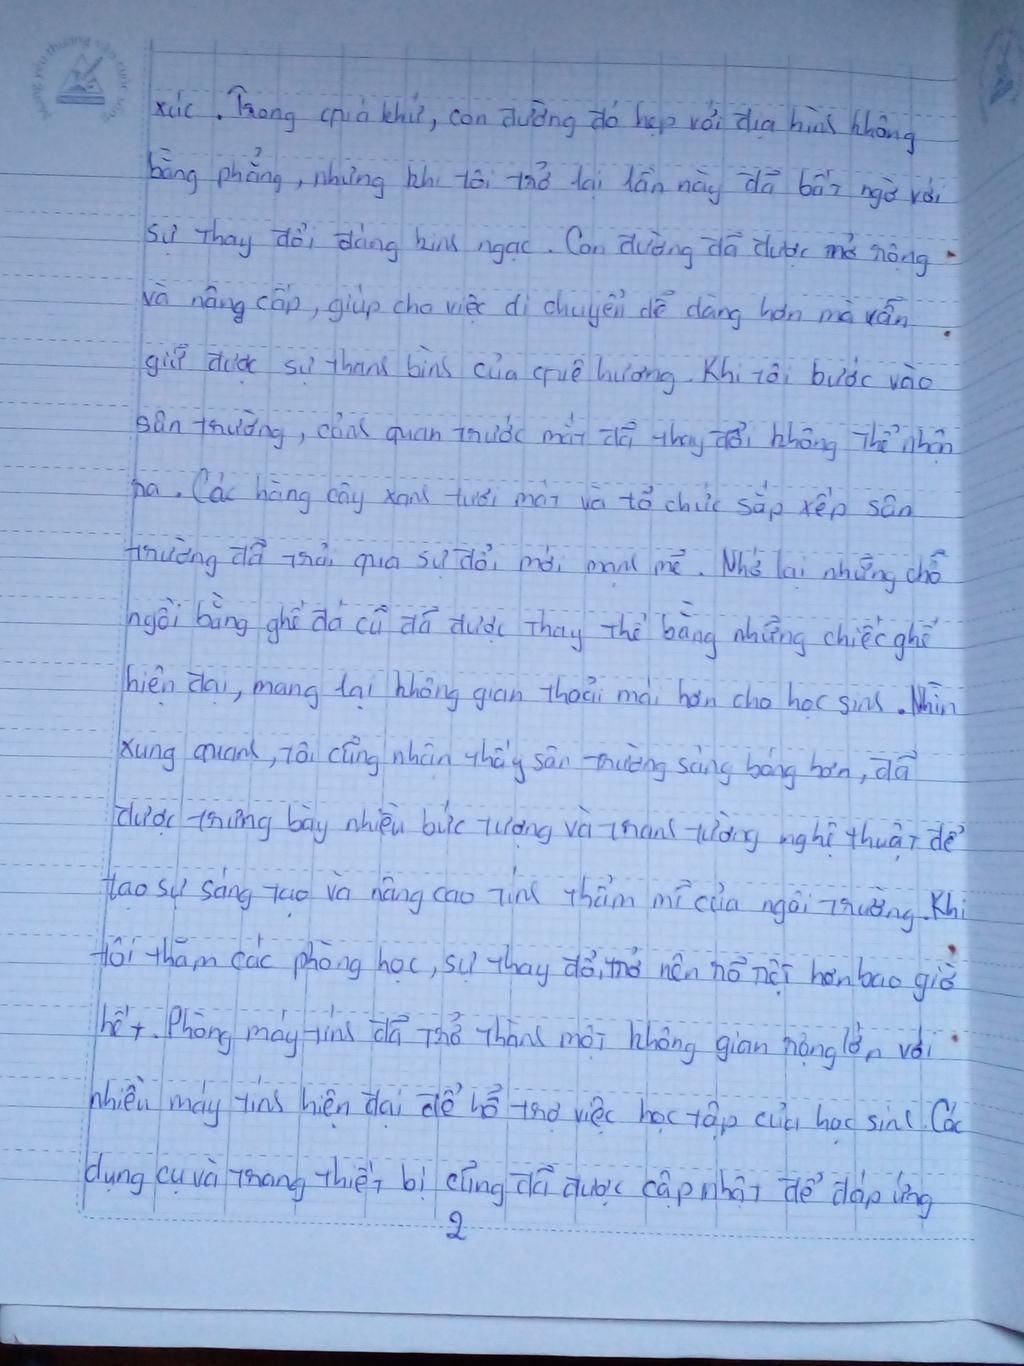 xúc. Trong quá khứ, con đường đó hẹp với địa hình không
bằng phẳng, nhưng khi tôi trở lại lần này đã bất ngờ với
sự thay đổi đáng kinh ngạc. Con đường đã được mở rộng
và nâng cấp, giúp cho việc di chuyển dễ dàng hơn mà vẫn
giữ được sự thanh bình của quê hương. Khi tôi bước vào
sân trường, cảnh quan trước mắt đã thay đổi không thể nhận
ra. Các hàng cây xanh tươi mát và tổ chức sắp xếp sân
trường đã trải qua sự đổi mới mạnh mẽ. Nhớ lại những chỗ
ngồi bằng ghế đá cũ đã được thay thế bằng những chiếc ghế
hiện đại, mang lại không gian thoải mái hơn cho học sinh. Nhìn
xung quanh, tôi cũng nhận thấy sân trường sáng bóng hơn, đã
được trưng bày nhiều bức tượng và tranh tường nghệ thuật để
tạo sự sáng tạo và nâng cao tính thẩm mĩ của ngôi trường. Khi
tôi thăm các phòng học, sự thay đổi trở nên rõ nét hơn bao giờ
hết. Phòng máy tính đã trở thành một không gian rộng lớn với
nhiều máy tính hiện đại để hỗ trợ việc học tập của học sinh. Các
dụng cụ và trang thiết bị cũng đã được cập nhật để đáp ứng
2